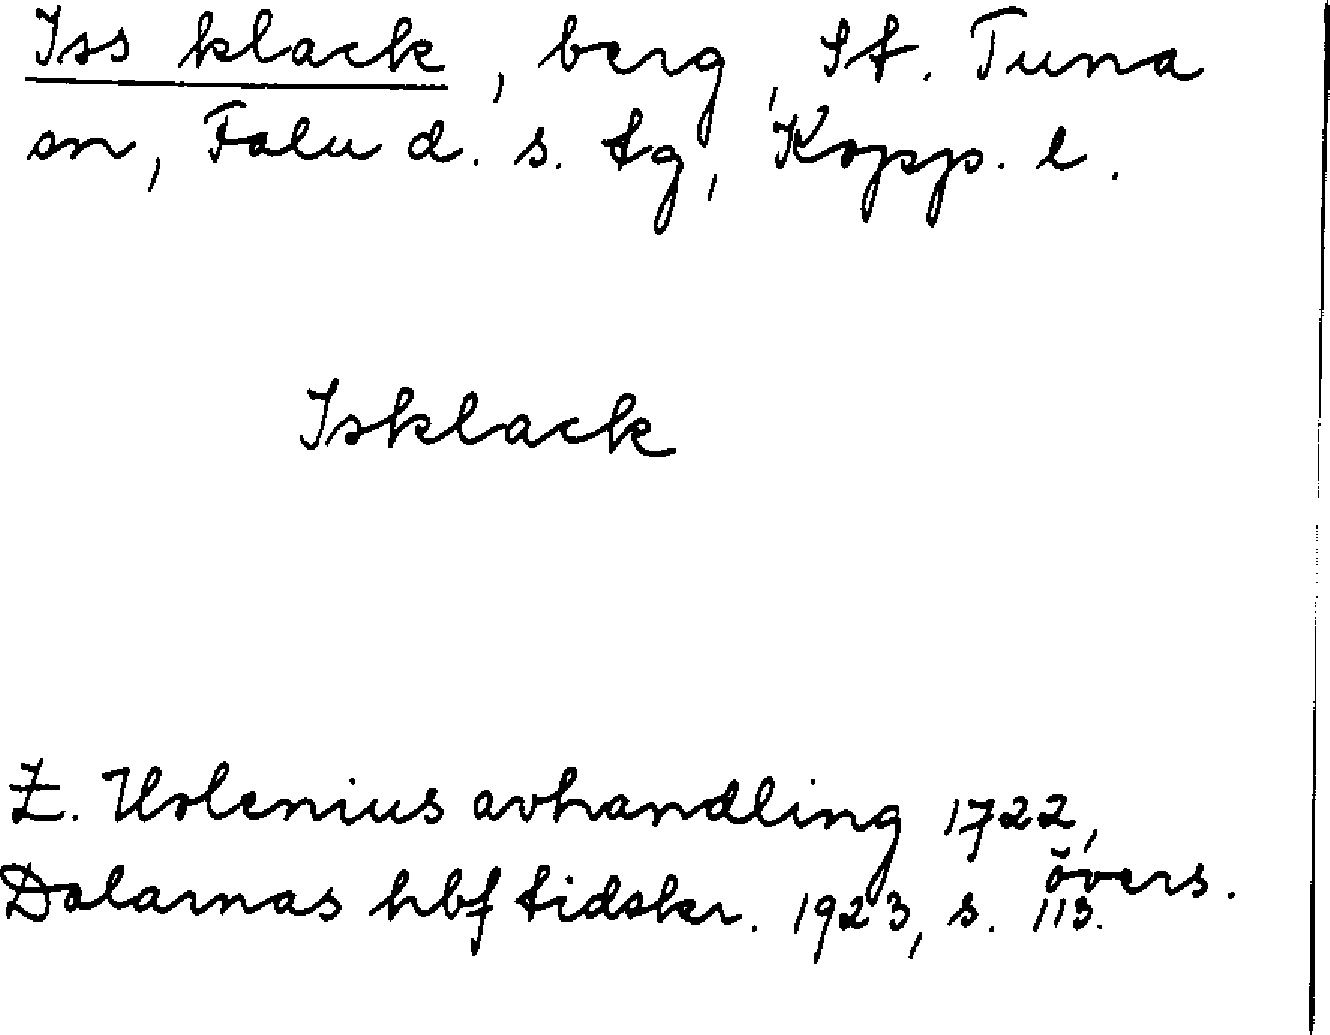 Iss klack, berg, St. Tuna
sn, Falu d. s. tg, Kopp. l.
Isklack
Z. Holenius avhandling 1722,
övers.
Dalarnas hbf tidskr. 1923, s. 113.